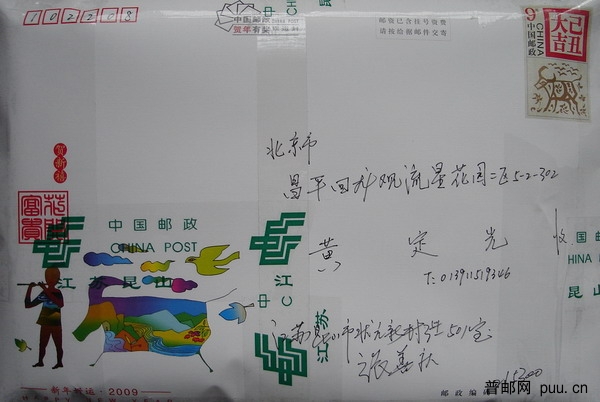 102208
中国邮政
贺年有奖
邮资已含挂号资费
请按给据邮件交寄
9元
中国邮政
CHINA
己丑
大吉
北京市
昌平回龙观流星花园二区5-2-302
黄定光 收
T:013911519346
贺新禧
花开
富贵
中国邮政
CHINA POST
江苏昆山
中
江
C
江苏
HINA P
昆山
江苏昆山市状元新村
501室
张善
新年好运·2009
HAPPY NEW YEAR
邮政编码
15300
普邮网 puu.cn